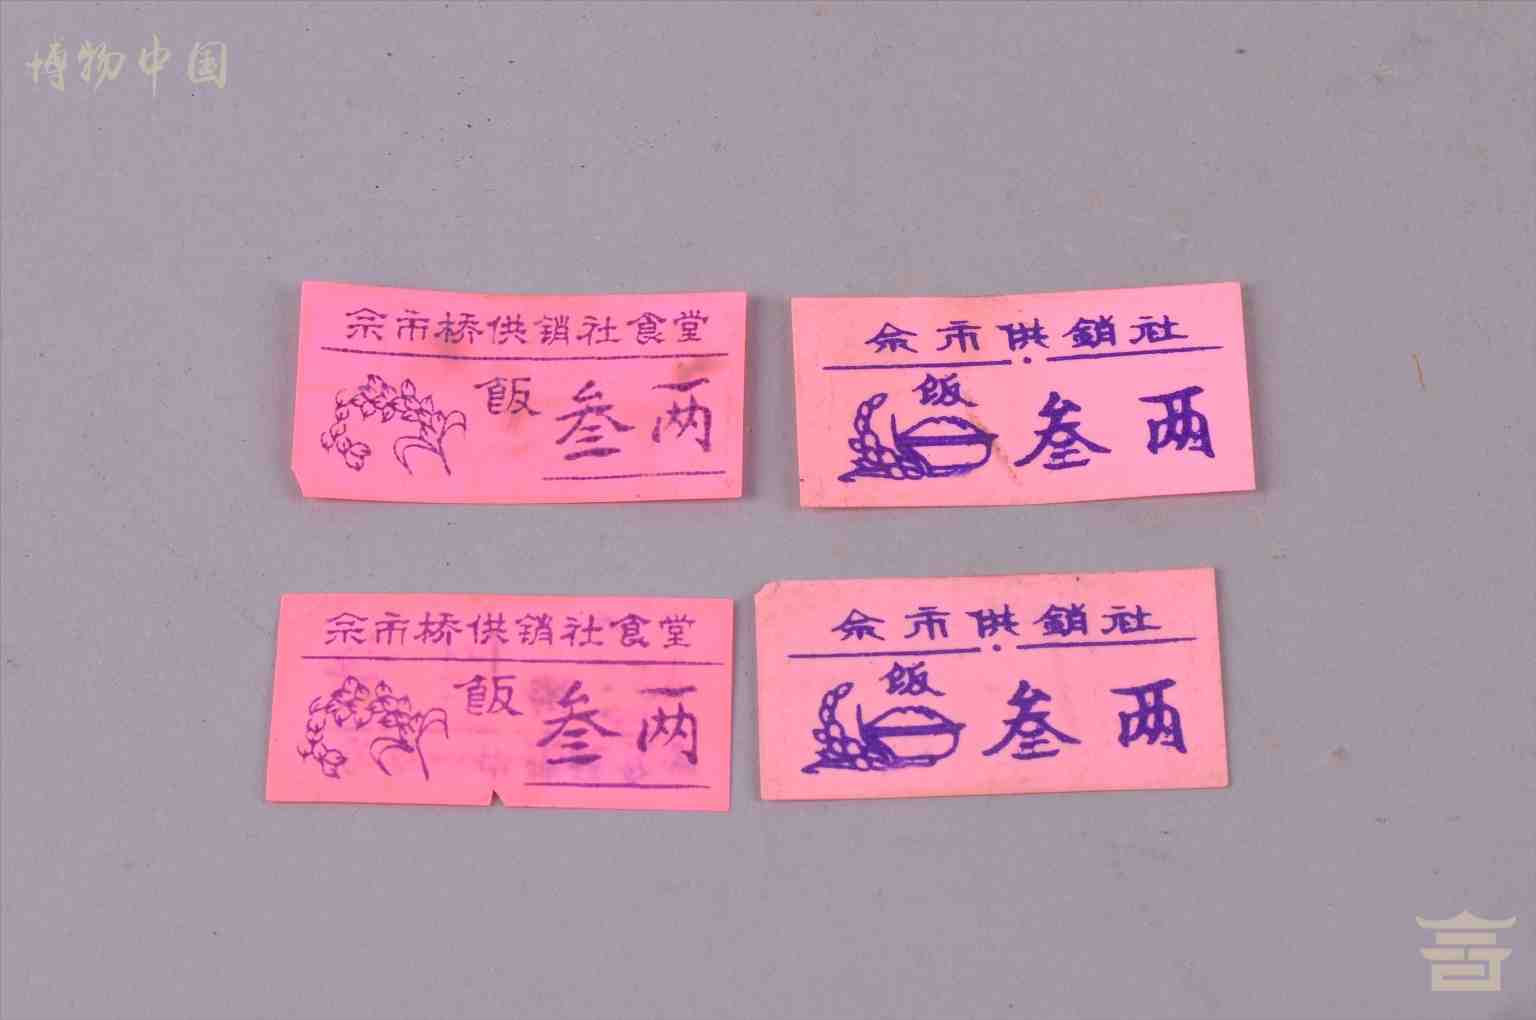 博物中国
佘市桥供销社食堂
飯 叁两
佘市供銷社
飯 叁两
佘市桥供销社食堂
飯 叁两
佘市供銷社
飯 叁两